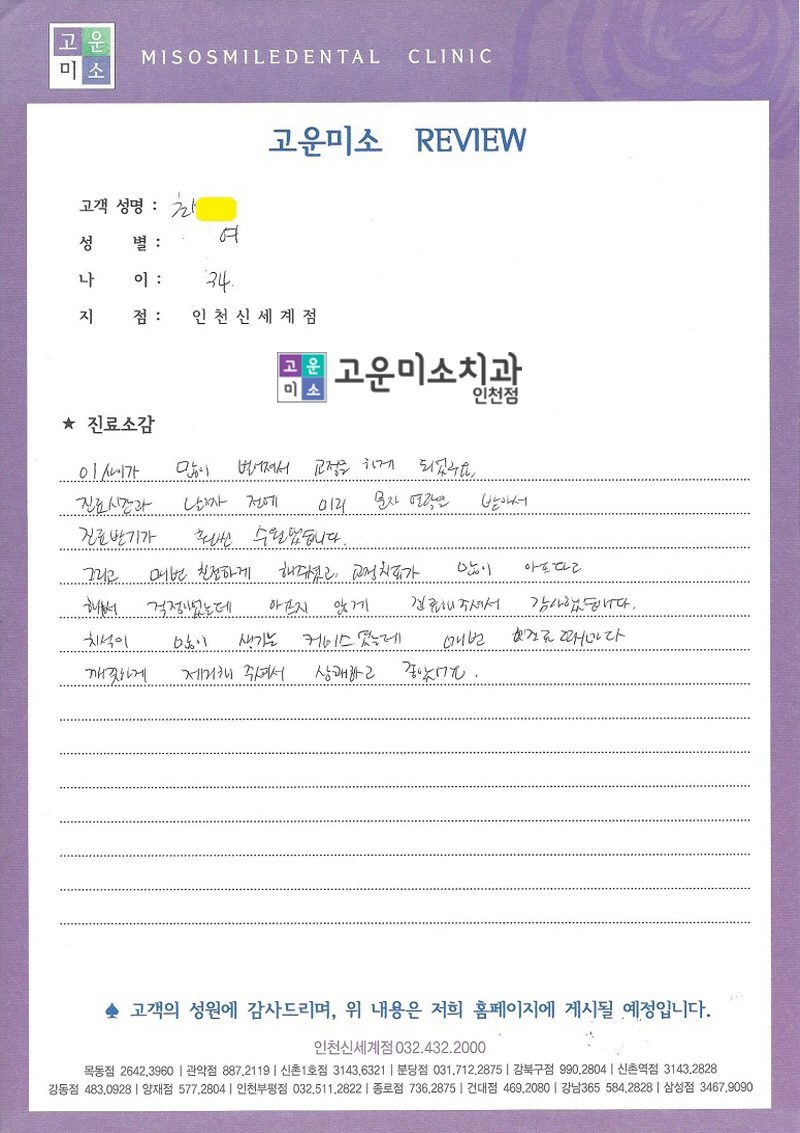 고운
미소
MISOSMILEDENTAL CLINIC
고운미소 REVIEW
고객 성명 :
성 별 : 여
나 이 : 34.
지 점 : 인천신세계점
고운
미소
고운미소치과
인천점
★ 진료소감
이 사이가 많이 벌어져서 교정을 하게 되었구요,
진료시간과 날짜 전에 미리 문자 연락을 받아서
진료받기가 훨씬 수월했습니다.
그리고 매번 친절하게 해주셨고, 교정치료가 많이 아프다고
해서 걱정했는데 아프지 않게 진료해주셔서 감사했습니다.
치석이 많이 생기는 케이스였는데 매번 진료때마다
깨끗하게 제거해 주셔서 상쾌하고 좋았어요.
♠ 고객의 성원에 감사드리며, 위 내용은 저희 홈페이지에 게시될 예정입니다.
인천신세계점 032.432.2000
목동점 2642.3960 | 관악점 887.2119 | 신촌1호점 3143.6321 | 분당점 031.712.2875 | 강북구점 990.2804 | 신촌역점 3143.2828
강동점 483.0928 | 양재점 577.2804 | 인천부평점 032.511.2822 | 종로점 736.2875 | 건대점 469.2080 | 강남365 584.2828 | 삼성점 3467.9090